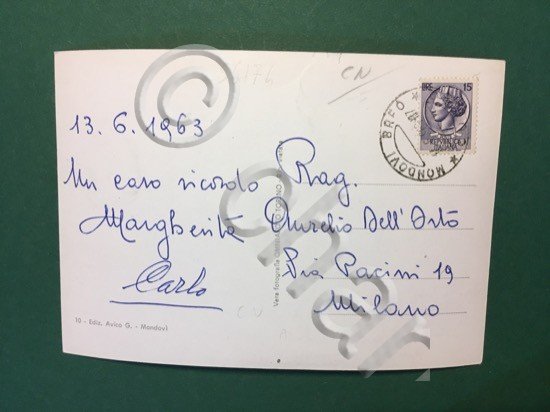 CN
LIRE 15
REPUBBLICA
ITALIANA
MONDOVI BREO
13.6.1963
Un caro ricordo
Margherita
Carlo
Rag.
Aurelio Dell'Orto
Via Pacini 19
Milano
Vera fotografia
CN
10 - Ediz. Avico G. - Mondovì
©